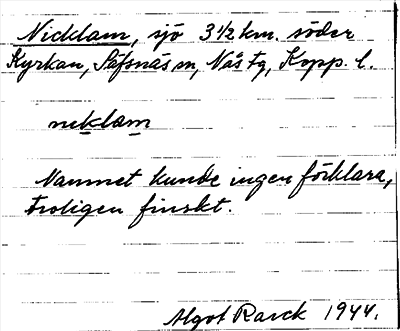 Nicklam, sjö 3 1/2 km. söder
Kyrkan, Säfsnäs sn, Nås tg, Kopp. l.
neklam
Namnet kunde ingen förklara,
troligen finskt.
Algot Rarck 1944.